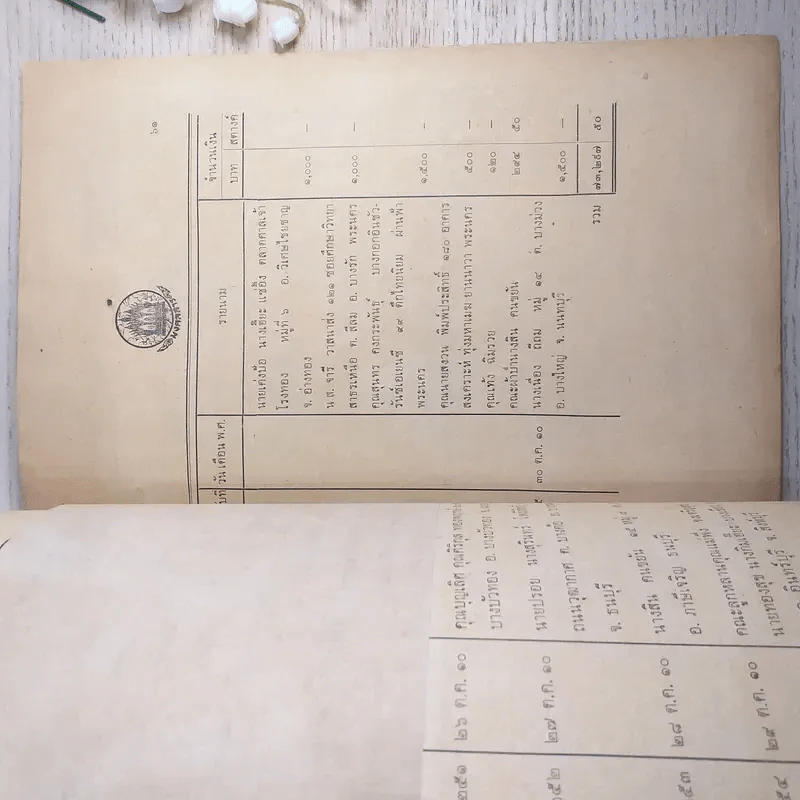 ๖๑
วัน เดือน พ.ศ. รายนาม จำนวนเงิน
บาท สตางค์
นายเค่งบือ นางเอียะ แซ่อึ้ง ตลาดศาลเจ้า
โรงทอง หมู่ที่ ๖ อ. วิเศษไชยชาญ
จ. อ่างทอง ๑,๐๐๐ —
น.ส. จารี วาสนาส่ง ๑๒๑ ซอยศึกษาวิทยา
สาธรเหนือ ต. สีลม อ. บางรัก พระนคร ๑,๐๐๐ —
คุณสุนทร คงกระพันธุ์ บางกอกอินชัว-
รันซ์เอเยนซี ๙๙ ตึกไทยนิยม ผ่านฟ้า
พระนคร ๑,๕๐๐ —
คุณนายสงวน พิมพ์ประสิทธิ์ ๑๘๐ อาคาร
สงเคราะห์ ทุ่งมหาเมฆ ยานนาวา พระนคร ๕๐๐ —
คุณเท้ง ฉิมรวย ๑๒๐ —
คณะผ้าป่านางสิน คนขยัน ๒๙๔ ๕๐
๓๐ ต.ค. ๑๐ นางเนื่อง ถีถม หมู่ ๑๔ ต. บางม่วง
อ. บางใหญ่ จ. นนทบุรี ๑,๕๐๐ —
รวม ๗๓,๒๕๗ ๕๐
๒๕๑ ๒๖ ต.ค. ๑๐ คุณบุญเลิศ คุณศิริกุล
บางบัวทอง อ. บางบัวทอง
๒๕๒ ๒๗ ต.ค. ๑๐ นายปรอย นางสุรินทร์
ถนนวุฒากาศ
จ. ธนบุรี
๕๓ ๒๘ ต.ค. ๑๐ นางสิน คนขยัน ๑๙ หมู่ ๙
อ. ภาษีเจริญ ธนบุรี
คณะลูกหลานคุณแม่ผึ่ง
๕๔ ๒๙ ต.ค. ๑๐ นายทองสุข นางกิมเฮียะ
อ. อินทร์บุรี จ. สิงห์บุรี